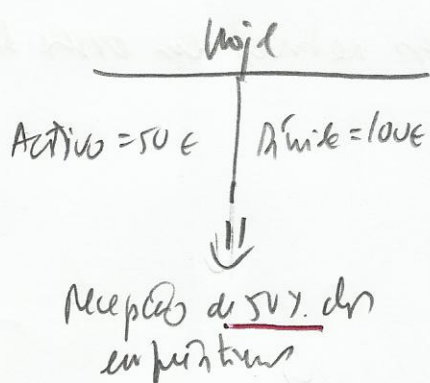 Hoje
Activo = 50 € Dívida = 100 €
recepção de 50% dos
empréstimos